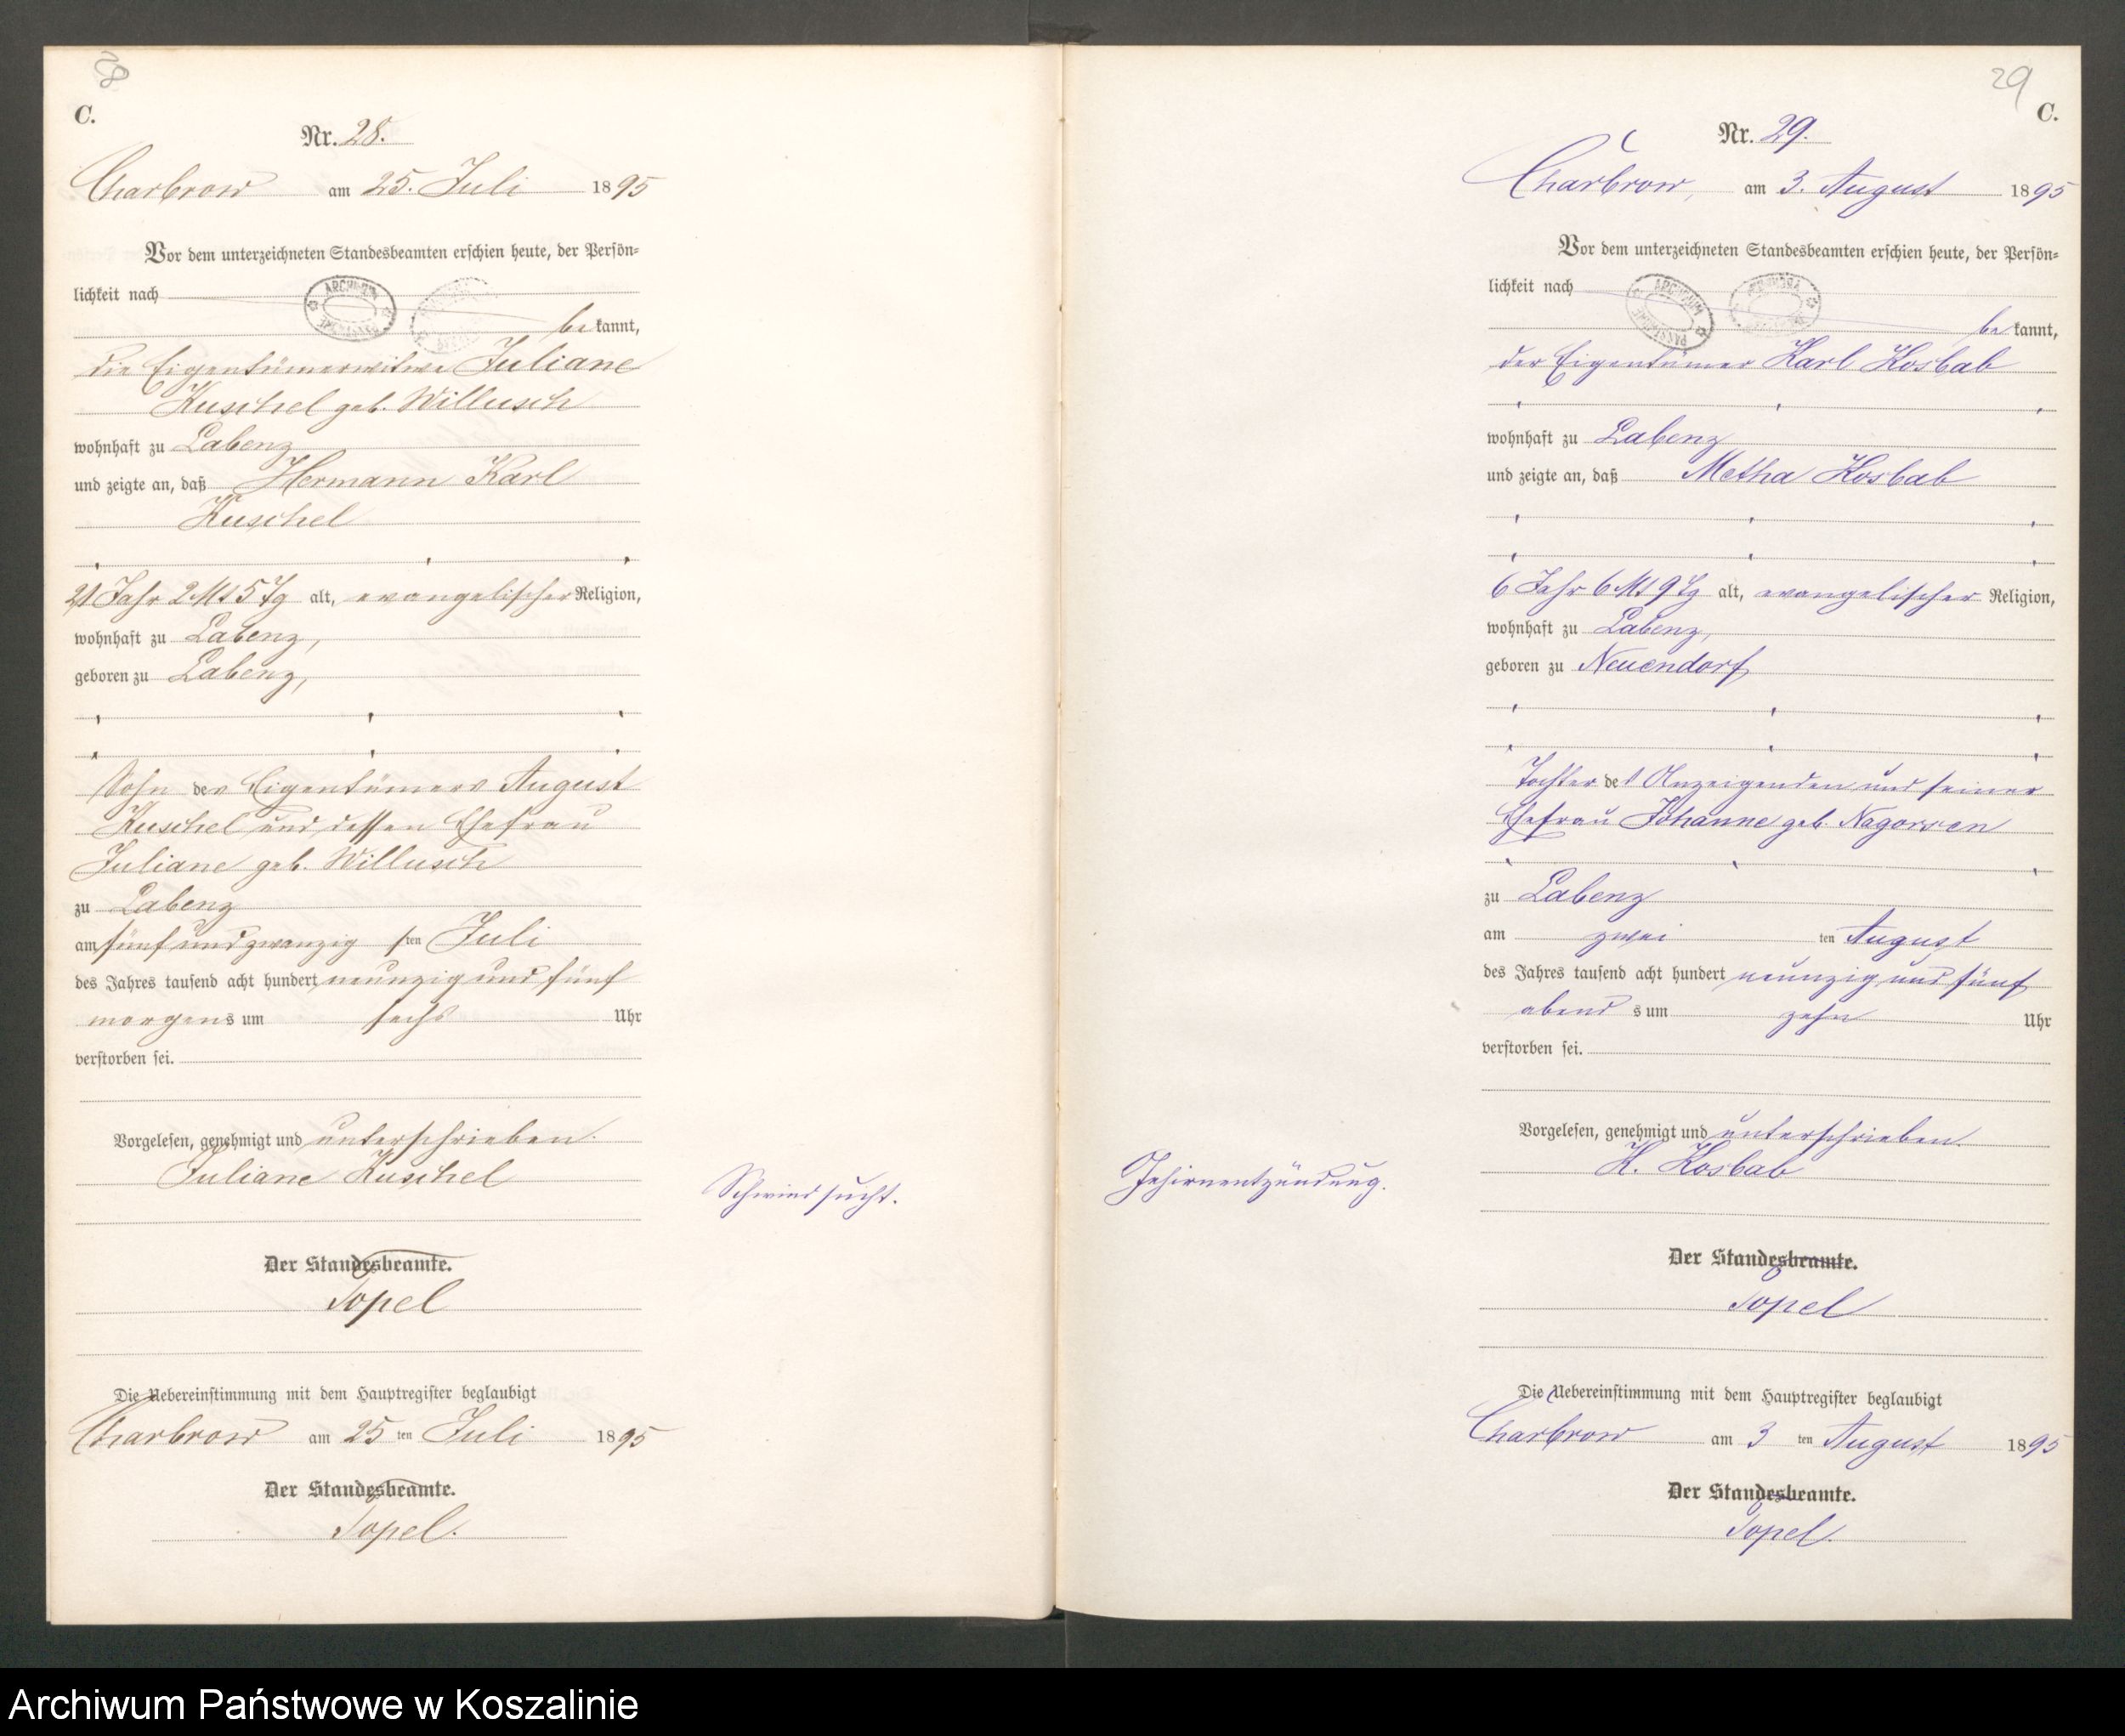 28
C.
Nr. 28.
Charbrow am 25. Juli 1895
Vor dem unterzeichneten Standesbeamten erschien heute, der Persön-
lichkeit nach
bekannt,
die Eigentümerwitwe Juliane
Kuschel geb. Willusch
wohnhaft zu Labenz
und zeigte an, daß Hermann Karl
Kuschel
21 Jahr 2 Mt 5 Tg alt, evangelischer Religion,
wohnhaft zu Labenz,
geboren zu Labenz,
Sohn des Eigentümers August
Kuschel und dessen Ehefrau
Juliane geb. Willusch
zu Labenz
am fünf und zwanzigsten Juli
des Jahres tausend acht hundert neunzig und fünf
morgens um sechs Uhr
verstorben sei.
Vorgelesen, genehmigt und unterschrieben.
Juliane Kuschel
Schwindsucht.
Der Standesbeamte.
Topel
Die Uebereinstimmung mit dem Hauptregister beglaubigt
Charbrow am 25ten Juli 1895
Der Standesbeamte.
Topel.
29
C.
Nr. 29.
Charbrow, am 3. August 1895
Vor dem unterzeichneten Standesbeamten erschien heute, der Persön-
lichkeit nach
bekannt,
der Eigentümer Karl Kosbab
wohnhaft zu Labenz
und zeigte an, daß Metha Kosbab
6 Jahr 6 Mt 9 Tg alt, evangelischer Religion,
wohnhaft zu Labenz,
geboren zu Neuendorf
Tochter des Anzeigenden und seiner
Ehefrau Johanne geb. Nagorsen
zu Labenz
am zweiten August
des Jahres tausend acht hundert neunzig und fünf
abends um zehn Uhr
verstorben sei.
Vorgelesen, genehmigt und unterschrieben.
K. Kosbab
Gehirnentzündung.
Der Standesbeamte.
Topel
Die Uebereinstimmung mit dem Hauptregister beglaubigt
Charbrow am 3ten August 1895
Der Standesbeamte.
Topel.
Archiwum Państwowe w Koszalinie